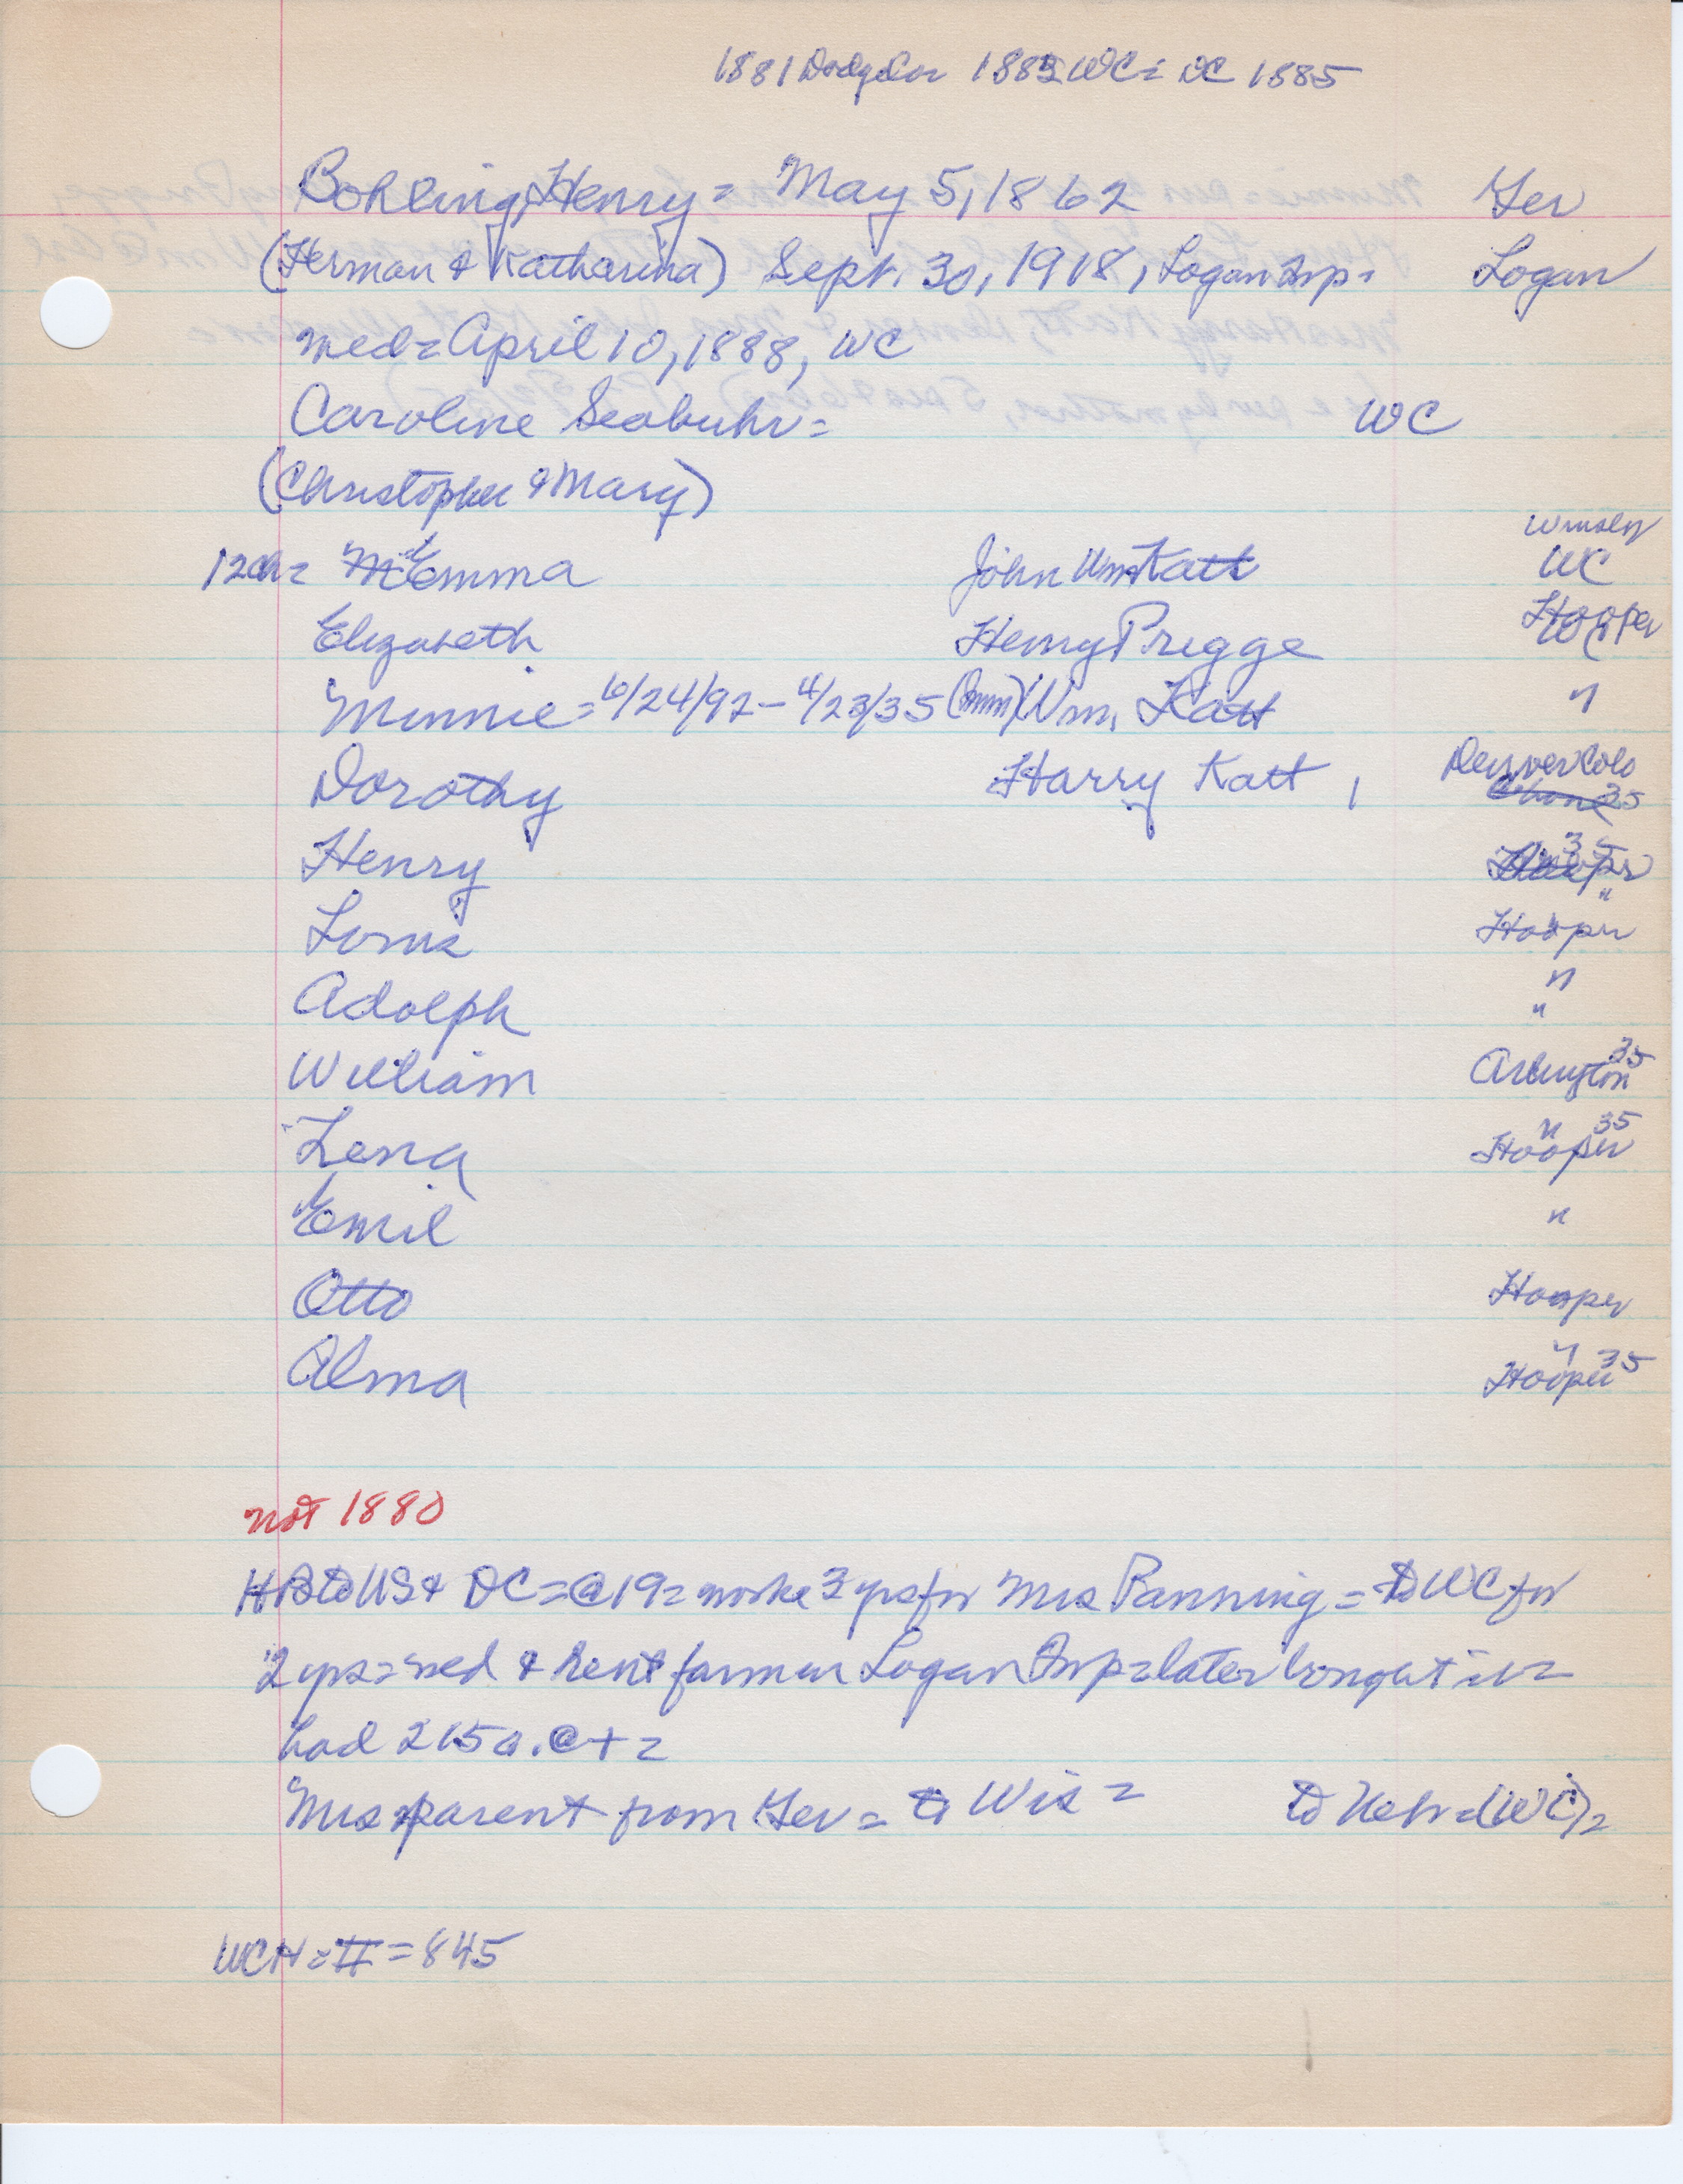 1881 Dodge Co= 1883 WC= DC 1885
Bohling, Henry= May 5, 1862 Ger
(Herman & Katharina) Sept. 30, 1918, Logan Twp= Logan
med= April 10, 1888, WC
Caroline Seabuhr= WC
(Christopher & Mary)
12ch= Emma John Wm Katt WC
Elizabeth Henry Prigge Hooper
Minnie= 6/24/92 - 4/23/35 Wm. Katt "
Dorothy Harry Katt, Denver Colo 35
Henry 35
Louis Hooper "
Adolph " "
William Arlington 35
Lena Hooper " 35
Emil "
Otto Hooper
Alma Hooper " 35
not 1880
HB to US & DC= @19= works 3 yrs for Mrs Panning= to WC for
2 yrs= med & rent farm in Logan Twp= later bought it=
had 215a. @ +=
Mrs parent from Ger= to Wis= to Neb= (WC)=
WCH= II= 845